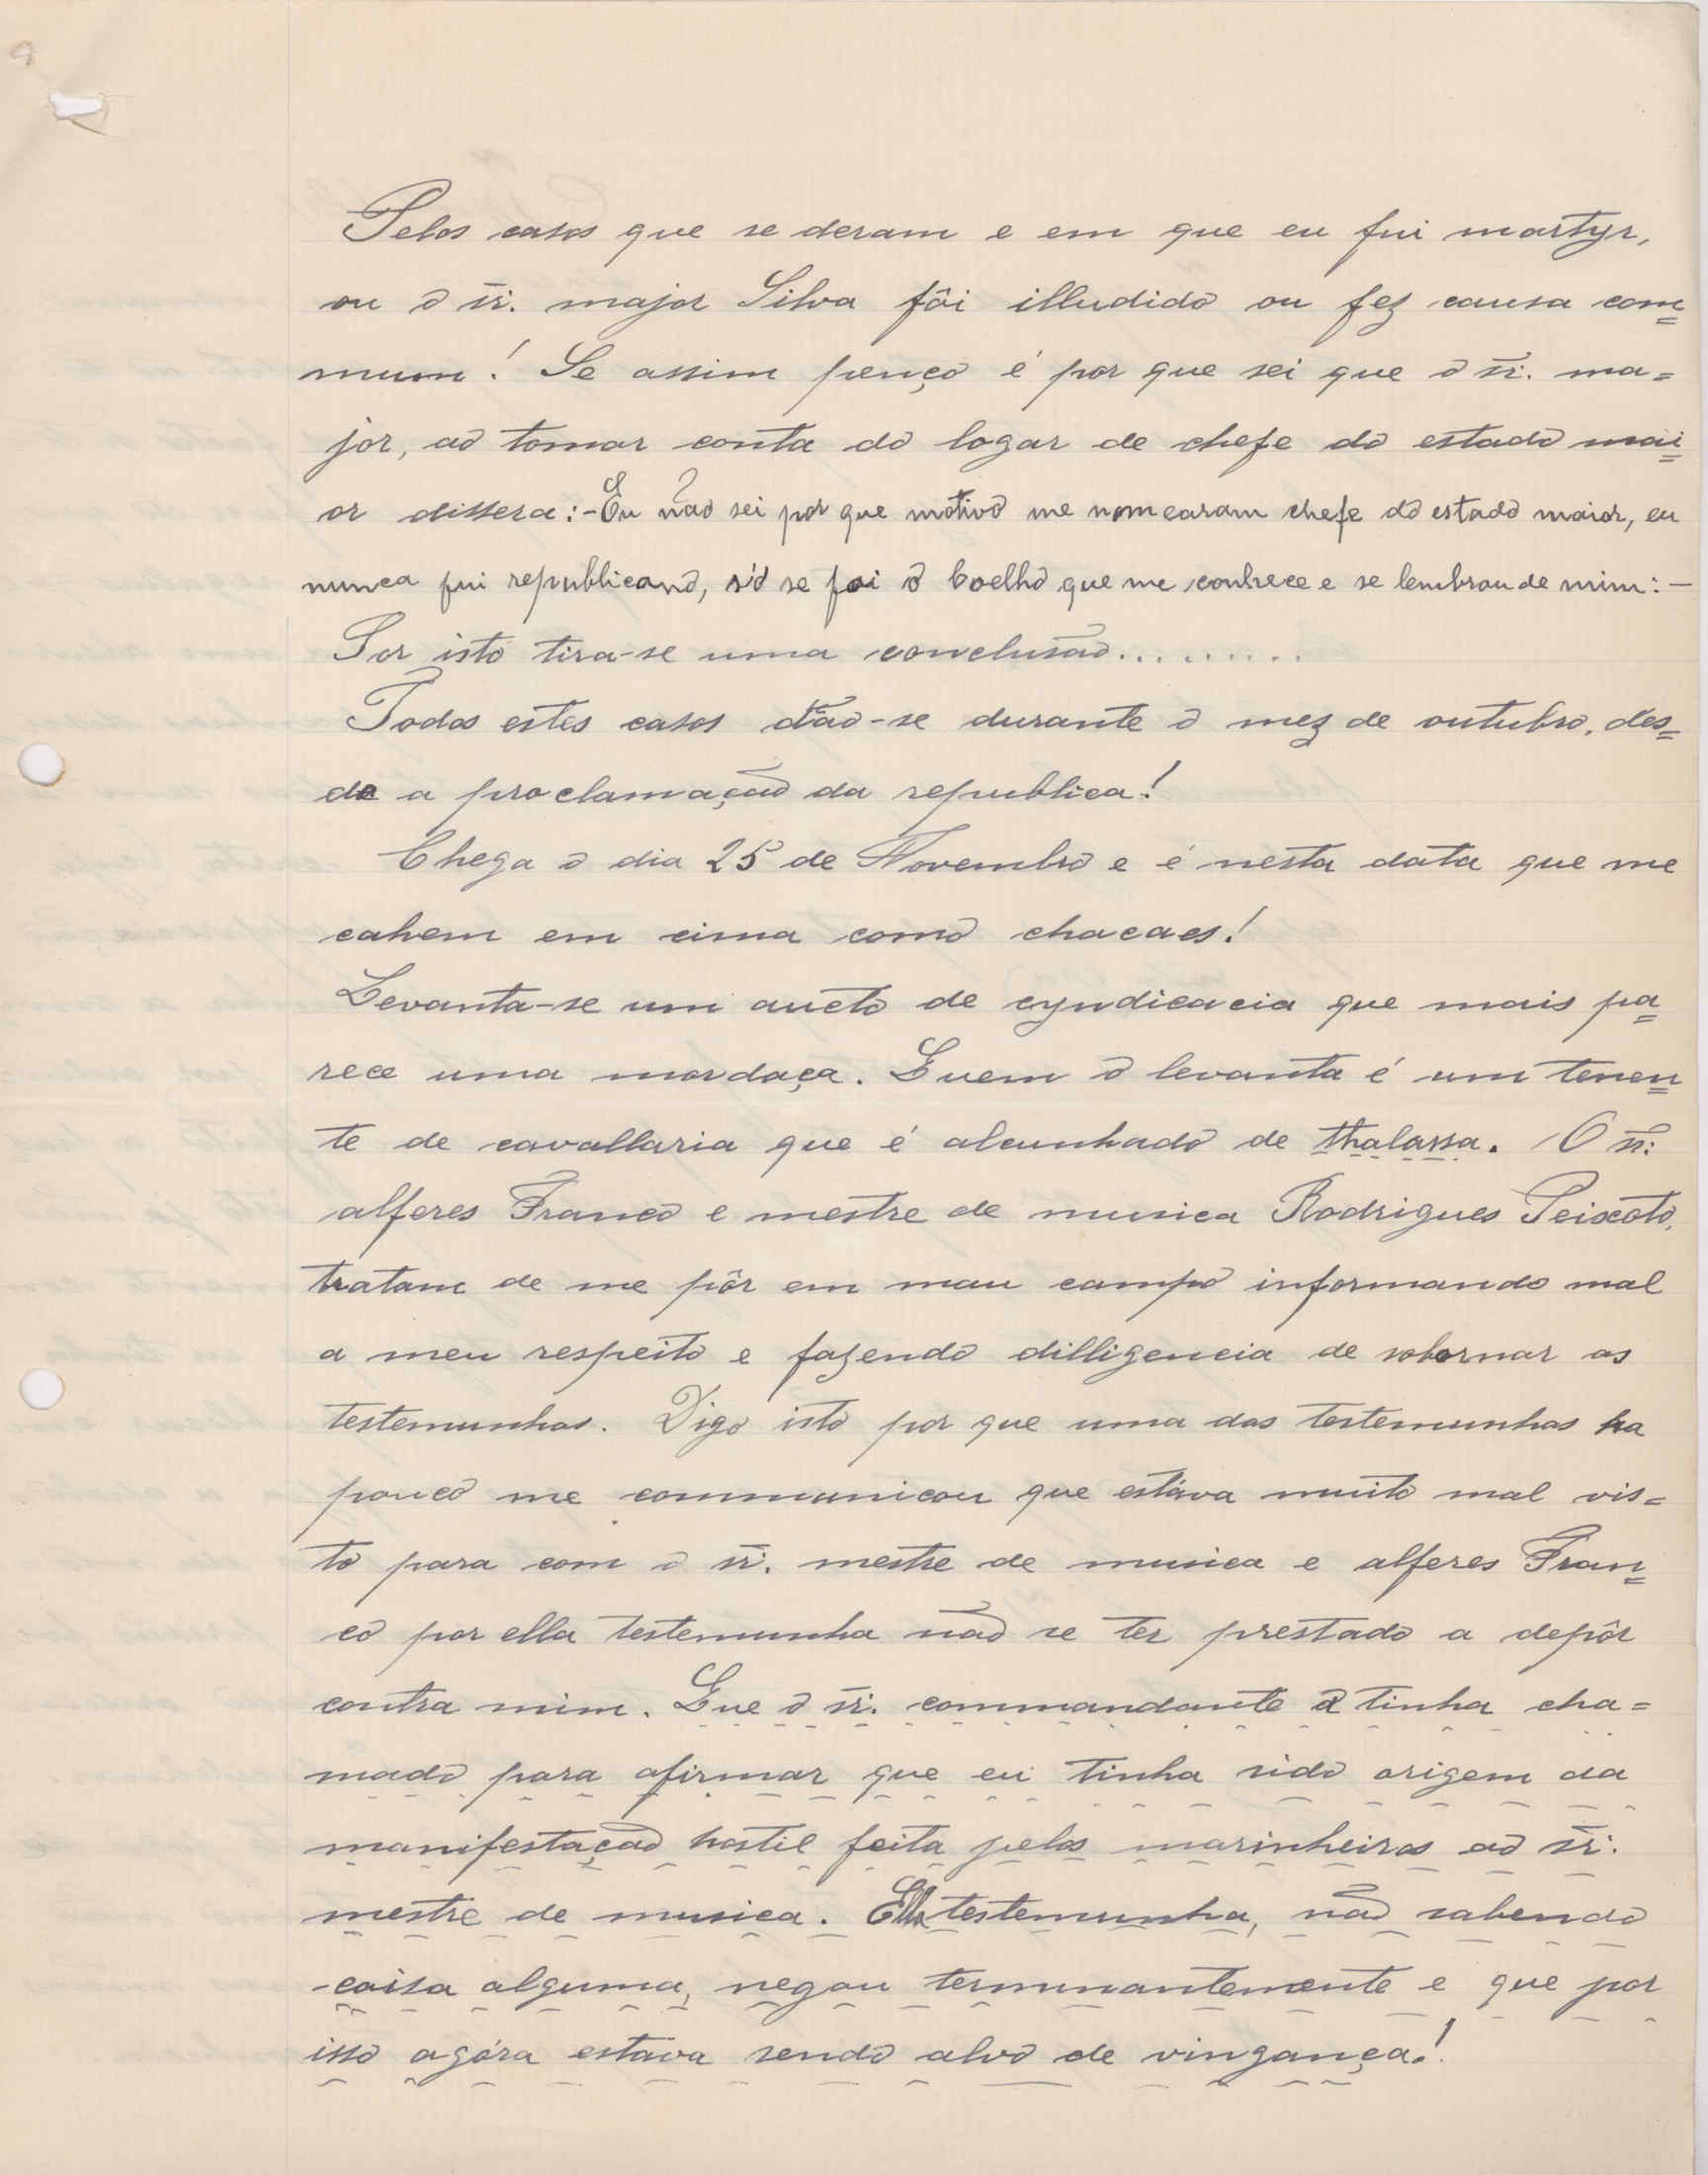 Pelos casos que se deram e em que eu fui martyr,
ou o sr. major Silva fôi illudido ou fez causa com=
mum! Se assim penço é por que sei que o sr. ma=
jor, ao tomar conta do logar de chefe do estado mai=
or dissera:-Eu não sei por que motivo me nomearam chefe do estado maior, eu
nunca fui republicano, só se foi o Coelho que me conhece e se lembrou de mim:—
Por isto tira-se uma conclusão.........
Todos estes casos dão-se durante o mez de outubro, des=
de a proclamação da republica!
Chega o dia 25 de Novembro e é nesta data que me
cahem em cima como chacaes!
Levanta-se um aucto de cyndicacia que mais pa=
rece uma mordaça. Quem o levanta é um tenen=
te de cavallaria que é alcunhado de thalassa. O sr:
alferes Franco e mestre de musica Rodrigues Peixoto,
tratam de me pôr em mau campo informando mal
a meu respeito e fazendo dilligencia de sobornar as
testemunhas. Digo isto por que uma das testemunhas ha
pouco me communicou que estáva muito mal vis=
to para com o sr. mestre de musica e alferes Fran=
co por ella testemunha não se ter prestado a depôr
contra mim. Que o sr. commandante a tinha cha=
mado para afirmar que eu tinha sido origem da
manifestação hostil feita pelos marinheiros ao sr.
mestre de musica. Ella testemunha, não sabendo
coisa alguma, negou terminantemente e que por
isso agóra estava sendo alvo de vingança!